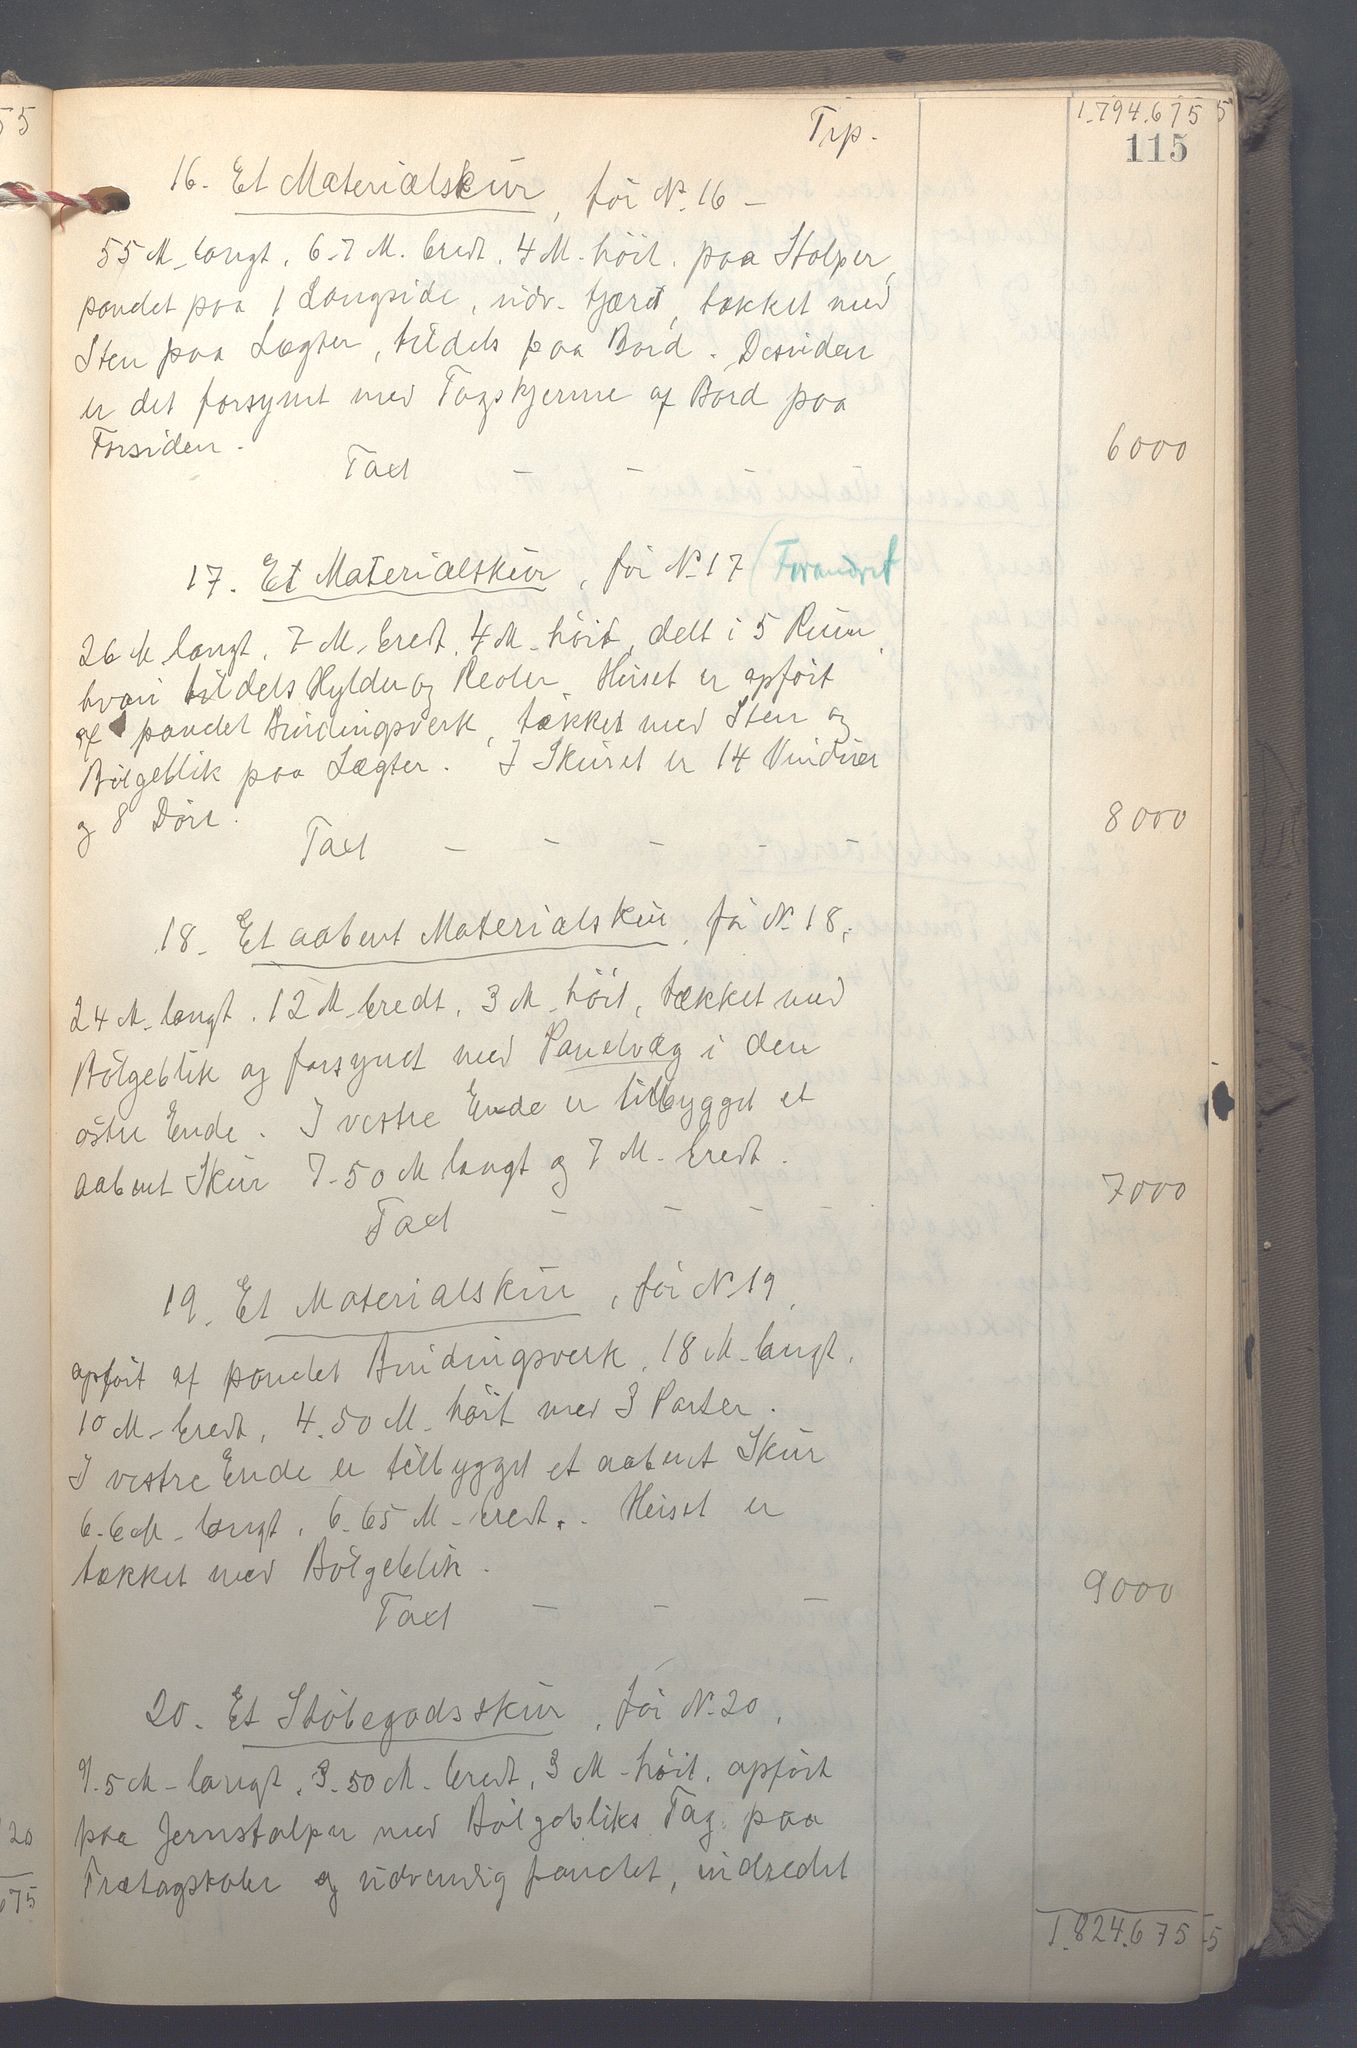 Trp. 1.794.675
115
16. Et Materialskur, för N. 16 -
55 M. langt, 6-7 M. bredt, 4 M. höit, paa Stolper,
panelet paa 1 Langside, udv. tjæret, tækket med
Sten paa Lægter, tildels paa Bord. Desuden
er det forsynet med Tagskjerme af Bord paa
Forsiden.
Taxt - - 6000
17. Et Materialskur, för N. 17 (Forandret
26 M langt, 7 M. bredt, 4 M. höit, delt i 5 Rum,
hvori tildels Hylder og Reoler. Huset er opført
af panelet Bindingsverk, tækket med Sten og
Bölgeblik paa Lægter. I Skuret er 14 Vinduer
og 8 Döre.
Taxt - - - - 8000
18. Et aabent Materialskur, för N. 18,
24 M. langt, 12 M. bredt, 3 M. höit, tækket med
Bölgeblik og forsynet med Panelvæg i den
östre Ende. I vestre Ende er tilbygget et
aabent Skur 7.50 M langt og 7 M. bredt.
Taxt - - - - 7000
19. Et Materialskur, för N. 19,
opfört af panelet Bindingsverk, 18 M. langt,
10 M. bredt, 4.50 M. höit med 3 Porter.
I vestre Ende er tilbygget et aabent Skur
6.6 M. langt, 6.65 M. bredt. Huset er
tækket med Bölgeblik.
Taxt - - - 9000
20. Et Stöbegodsskur, för N. 20,
9.5 M. langt, 3.50 M. bredt, 3 M. höit, opfört
paa Jernstolper med Bölgebliks Tag paa
Trætagstoler og udvendig panelet, indredet
1.824.675